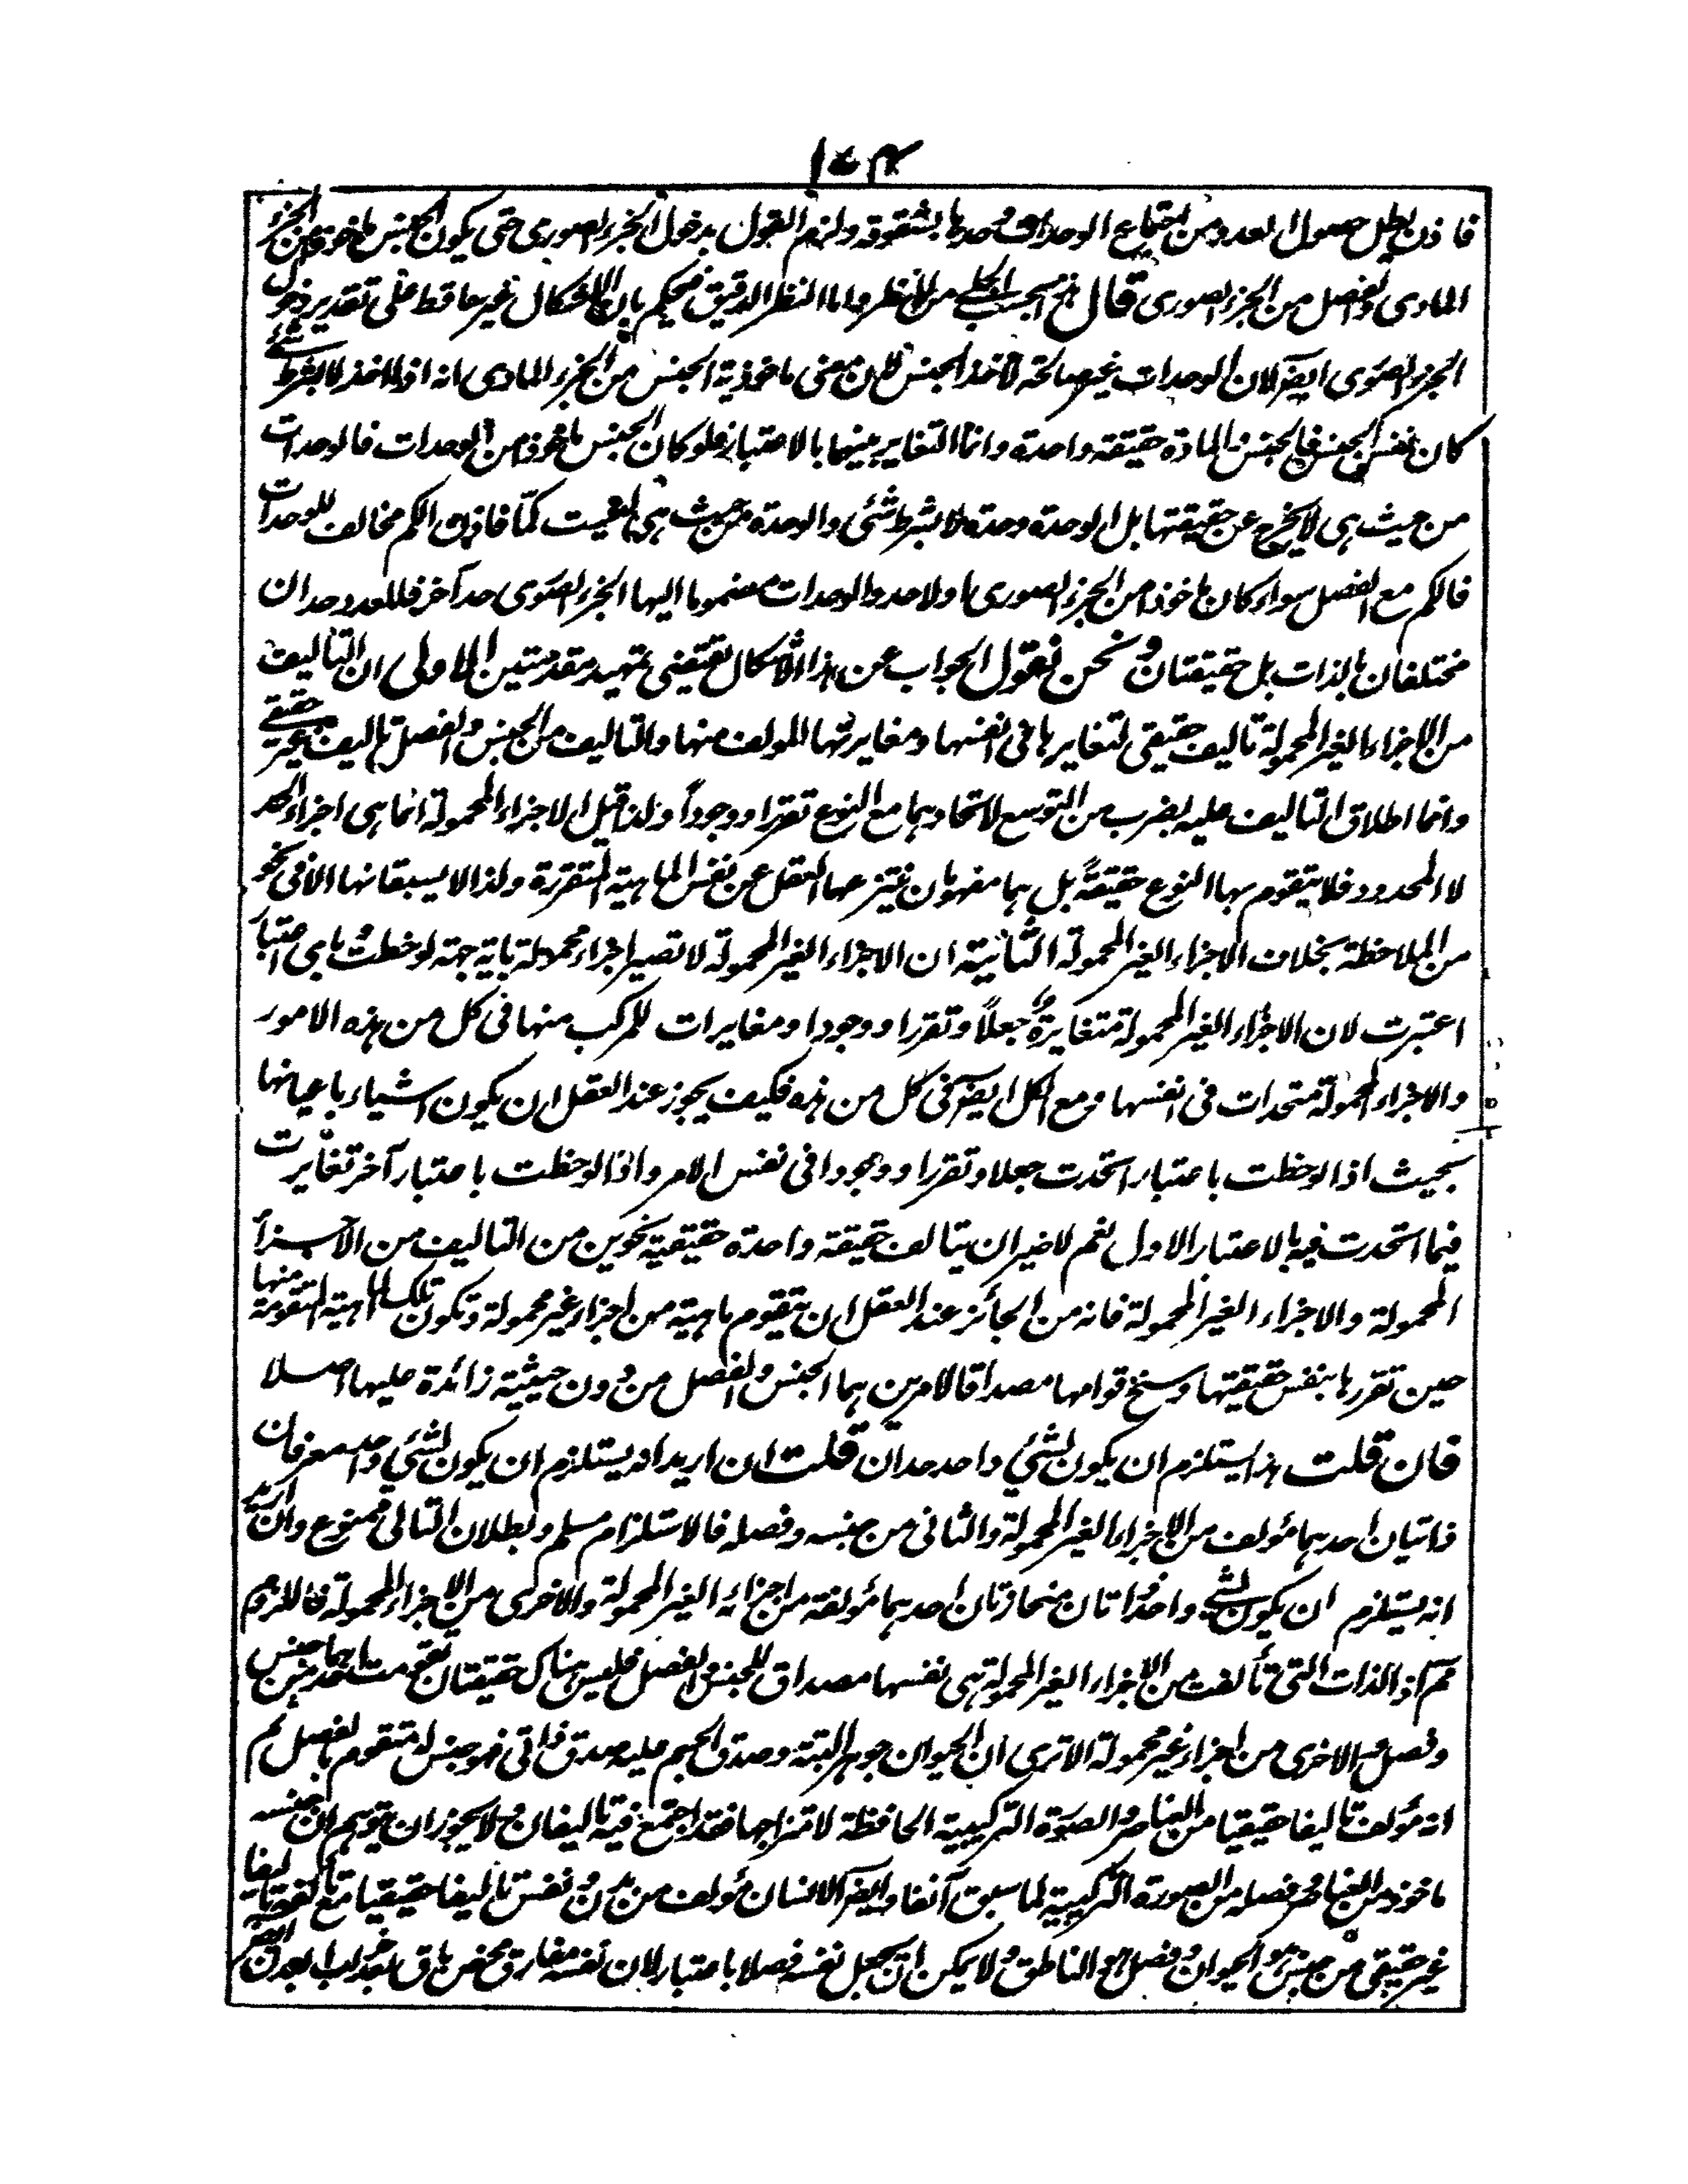 ١٥٤
فاذن بطل حصول العدد من اجتماع الوحدات وحدها بشقوقه ولزم القول بدخول الجزء الصورى حتى يكون الجنس ماخوذا من الجزء
المادى والفصل من الجزء الصورى قال هذا بحسب الجلى من النظر واما النظر الدقيق فيحكم بان الاشكال غير ساقط على تقدير دخول
الجزء الصورى ايضا لان الوحدات غير صالحة لاخذ الجنس لان معنى ماخوذية الجنس من الجزء المادى انه اذا اخذ لا بشرط شئ
كان نفس الجنس فالجنس والمادة حقيقة واحدة وانما التغاير بينهما بالاعتبار فلو كان الجنس ماخوذا من الوحدات فالوحدات
من حيث هى لا يخرج عن حقيقتها بل الوحدة وحدة لا بشرط شئ والوحدة من حيث هى هى ليست كمّا فاذن الكم مخالف للوحدات
فالكم مع الفصل سواء كان ماخوذا من الجزء الصورى او لا حد والوحدات مضموما اليها الجزء الصورى حد آخر فللعدد حدان
مختلفان بالذات بل حقيقتان ونحن نقول الجواب عن هذا الاشكال يقتضى تمهيد مقدمتين الاولى ان التاليف
من الاجزاء الغير المحمولة تاليف حقيقى لتغايرها فى انفسها ومغايرتها للمولف منها والتاليف من الجنس والفصل تاليف غير حقيقى
وانما اطلاق التاليف عليه بضرب من التوسع لاتحادهما مع النوع تقررا ووجوداً ولذا قيل الاجزاء المحمولة انما هى اجزاء الحد
لا المحدود فلا يتقوم بها النوع حقيقةً بل هما مفهومان ينتزعهما العقل عن نفس الماهية المتقررة ولذا لا يسبقانها الا فى نحو
من الملاحظة بخلاف الاجزاء الغير المحمولة الثانية ان الاجزاء الغير المحمولة لا تصير اجزاء محمولة باية جهة لوخظت وباى اعتبار
اعتبرت لان الاجزاء الغير المحمولة متغايرة جعلاً وتقررا ووجودا ومغايرات للمركب منها فى كل من هذه الامور
والاجزاء المحمولة متحدات فى انفسها ومع الكل ايضا فى كل من هذه فكيف يجوز عند العقل ان يكون اشياء باعيانها
بحيث اذا لوحظت باعتبار اتحدت جعلا وتقررا ووجودا فى نفس الامر واذا لوحظت باعتبار آخر تغايرت
فيما اتحدت فيه بالاعتبار الاول نعم لا ضير ان يتالف حقيقة واحدة حقيقية بنحوين من التاليف من الاجزاء
المحمولة والاجزاء الغير المحمولة فانه من الجائز عند العقل ان يتقوم ماهية من اجزاء غير محمولة وتكون تلك الماهية المتقومة منها
حين تقررها بنفس حقيقتها وسنخ قوامها مصداقا لامرين هما الجنس والفصل من دون حيثية زائدة عليها اصلا
فان قلت هذا يستلزم ان يكون لشئ واحد حدان قلت ان اريد انه يستلزم ان يكون لشئ واحد معرفان
ذاتيان احدهما مؤلف من الاجزاء الغير المحمولة والثانى من جنسه وفصله فالاستلزام مسلم وبطلان التالى ممنوع وان اريد
انه يستلزم ان يكون لشئ واحد ذاتان منحازتان احدهما مؤلفة من اجزائه الغير المحمولة والاخرى من الاجزاء المحمولة فاللزوم
مم اذ الذات التى تألفت من الاجزاء الغير المحمولة هى نفسها مصداق للجنس والفصل فليس هناك حقيقتان تقومت احداهما من جنس
وفصل والاخرى من اجزاء غير محمولة الا ترى ان الحيوان جوهر البتة وصدق الجسم عليه صدق ذاتى فهو جنس له متقوم بالفصل ثم
انه مؤلف تاليفا حقيقيا من العناصر والصورة التركيبية الحافظة لامتزاجها فقد اجتمع فيه تاليفان ولا يجوز ان يتوهم ان جنسه
ماخوذ من العناصر وفصله من الصورة التركيبية لما سبق آنفا وايضا الانسان مؤلف من بدن ونفس تاليفا حقيقيا مع تالفه تاليفا
غير حقيقى من جنس هو الحيوان وفصل هو الناطق ولا يمكن ان يجعل نفسه فصلا باعتبار لان نفسه مفارق محض باق بعد خراب البدن